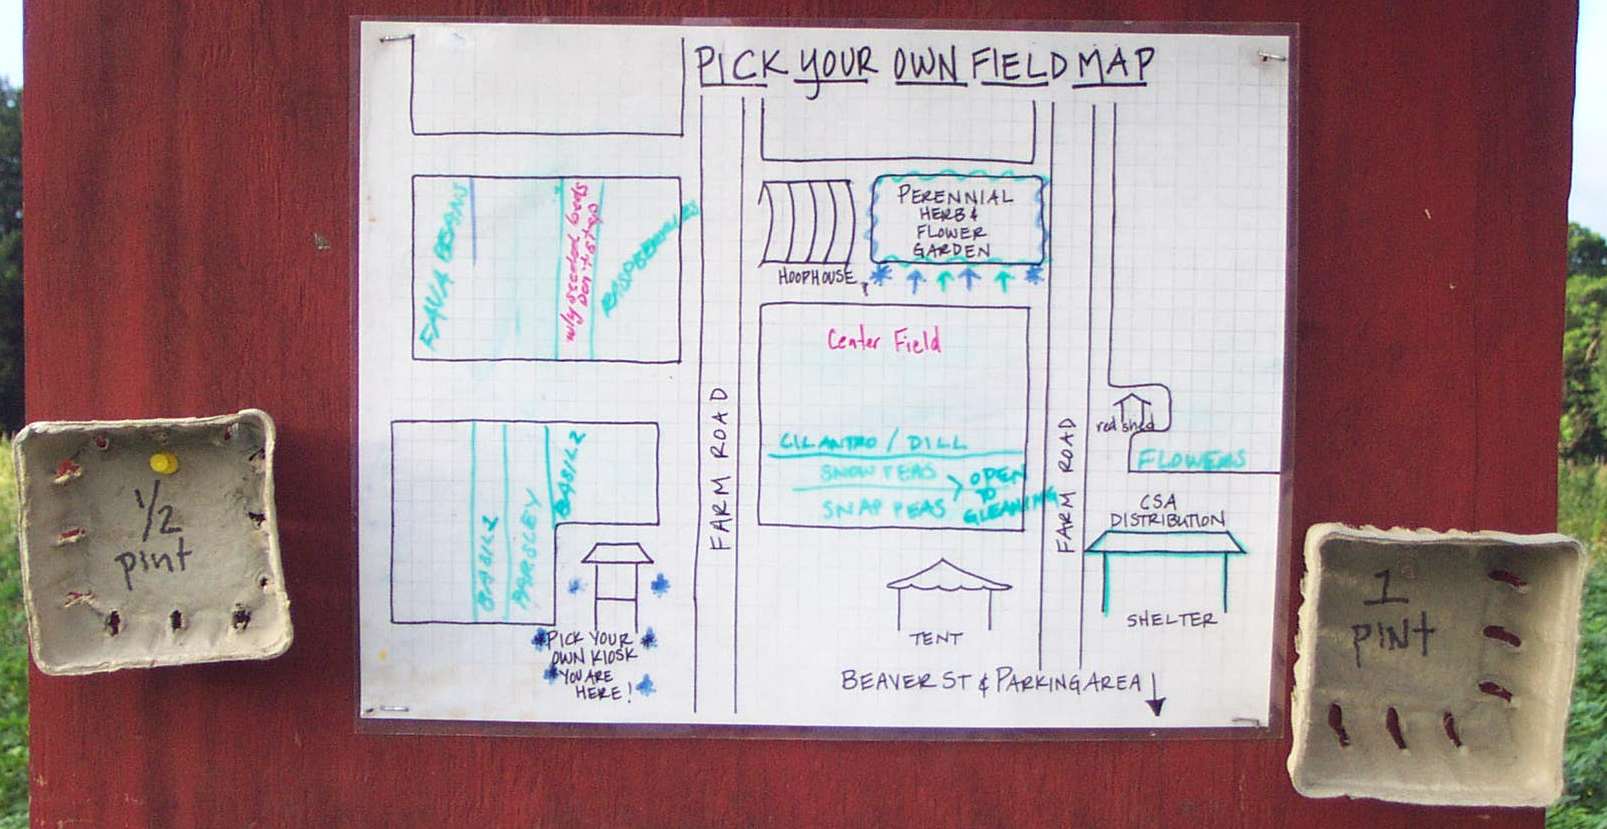 PICK YOUR OWN FIELD MAP
FAVA BEANS
seeded beds
Don't step
RASPBERRIES
HOOPHOUSE
PERENNIAL
HERB &
FLOWER
GARDEN
Center Field
CILANTRO / DILL
SNOW PEAS
SNAP PEAS
> OPEN
TO
GLEANING
BASIL
PARSLEY
BASIL
FARM ROAD
FARM ROAD
red shed
FLOWERS
CSA
DISTRIBUTION
SHELTER
TENT
PICK YOUR
OWN KIOSK
YOU ARE
HERE!
BEAVER ST & PARKING AREA
1/2
pint
1
PINT